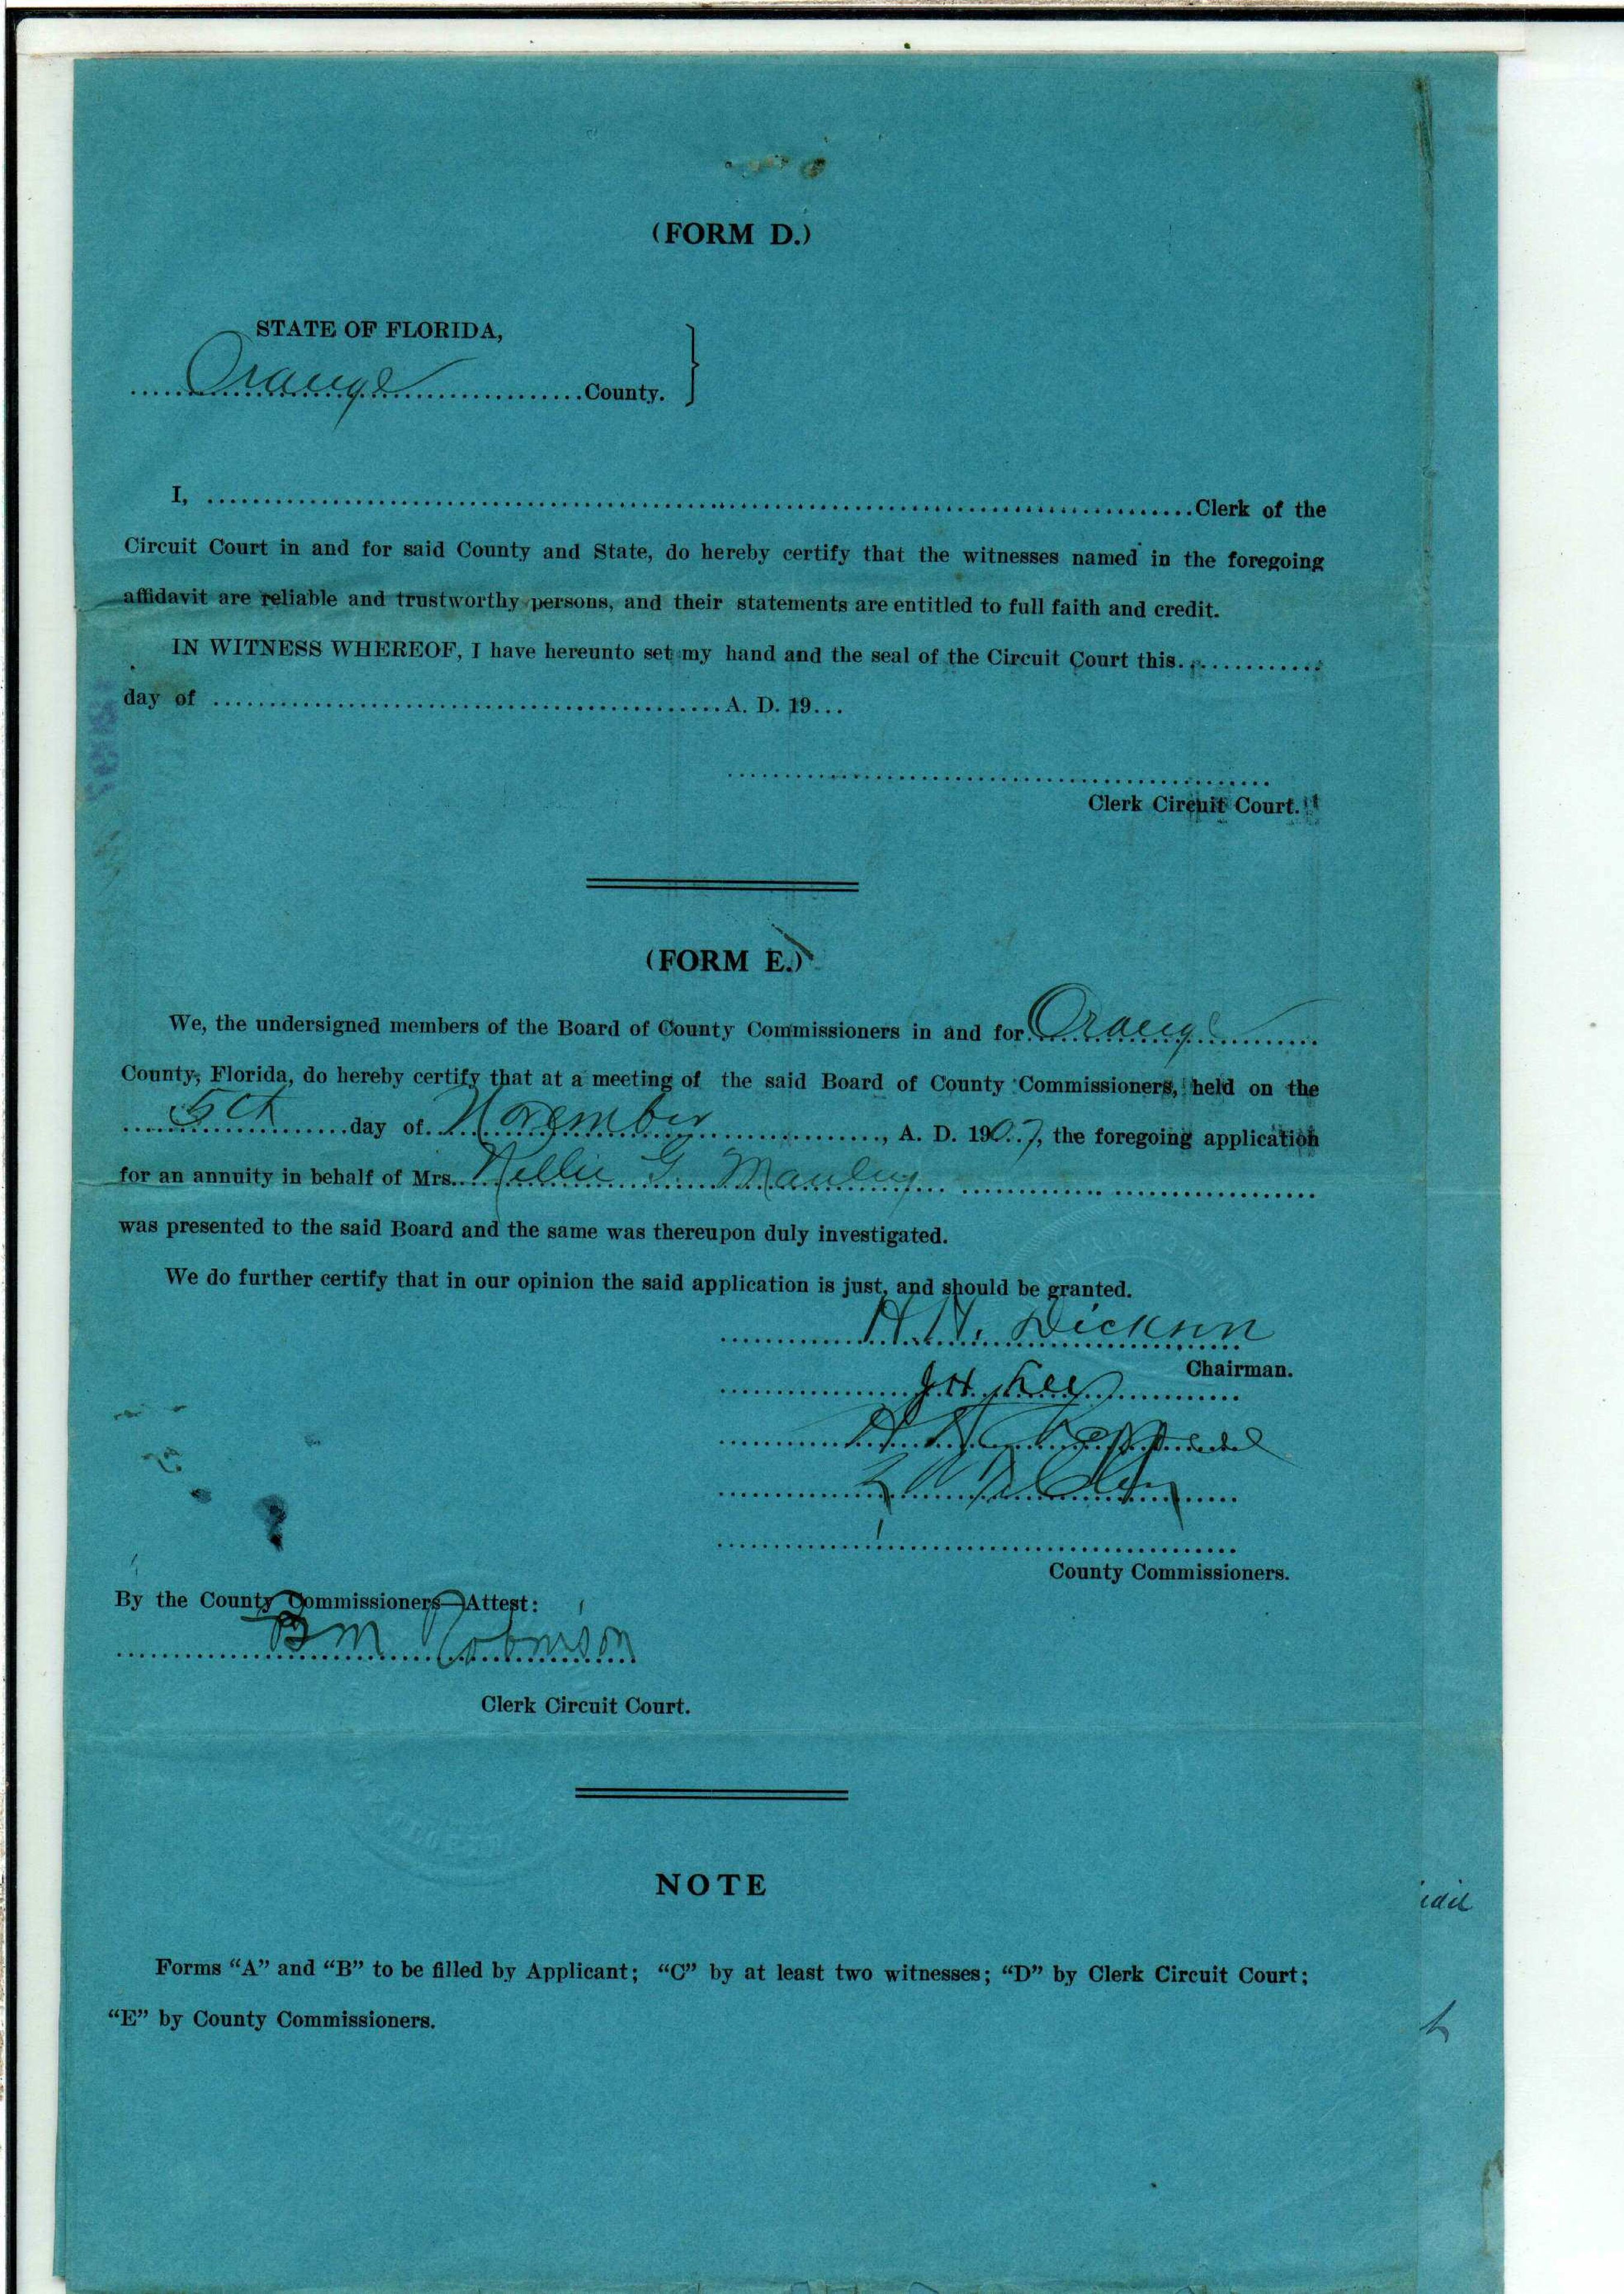 (FORM D.)
STATE OF FLORIDA,
Orange County.
I, Clerk of the
Circuit Court in and for said County and State, do hereby certify that the witnesses named in the foregoing
affidavit are reliable and trustworthy persons, and their statements are entitled to full faith and credit.
IN WITNESS WHEREOF, I have hereunto set my hand and the seal of the Circuit Court this
day of A. D. 19...
Clerk Circuit Court.
(FORM E.)
We, the undersigned members of the Board of County Commissioners in and for Orange
County, Florida, do hereby certify that at a meeting of the said Board of County Commissioners, held on the
5th day of November, A. D. 1907, the foregoing application
for an annuity in behalf of Mrs. Nellie G. Manley
was presented to the said Board and the same was thereupon duly investigated.
We do further certify that in our opinion the said application is just, and should be granted.
H. H. Dickson
Chairman.
J. H. Lee
County Commissioners.
By the County Commissioners—Attest:
B M Robinson
Clerk Circuit Court.
NOTE
Forms “A” and “B” to be filled by Applicant; “C” by at least two witnesses; “D” by Clerk Circuit Court;
“E” by County Commissioners.